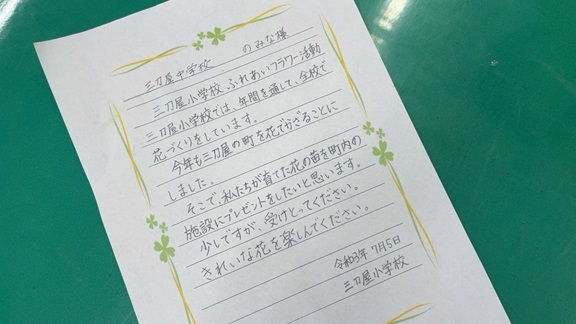 三刀屋中学校　のみな様
三刀屋小学校 ふれあいフラワー活動
三刀屋小学校では、年間を通して、全校で
花づくりをしています。
今年も三刀屋の町を花でかざることに
しました。
そこで、私たちが育てた花の苗を町内の
施設にプレゼントをしたいと思います。
少しですが、受けとってください。
きれいな花を楽しんでください。
令和3年7月5日
三刀屋小学校